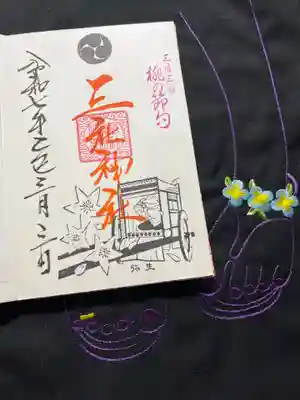 三月三日
桃の節句
三社神社
令和七年乙巳三月三日
弥生